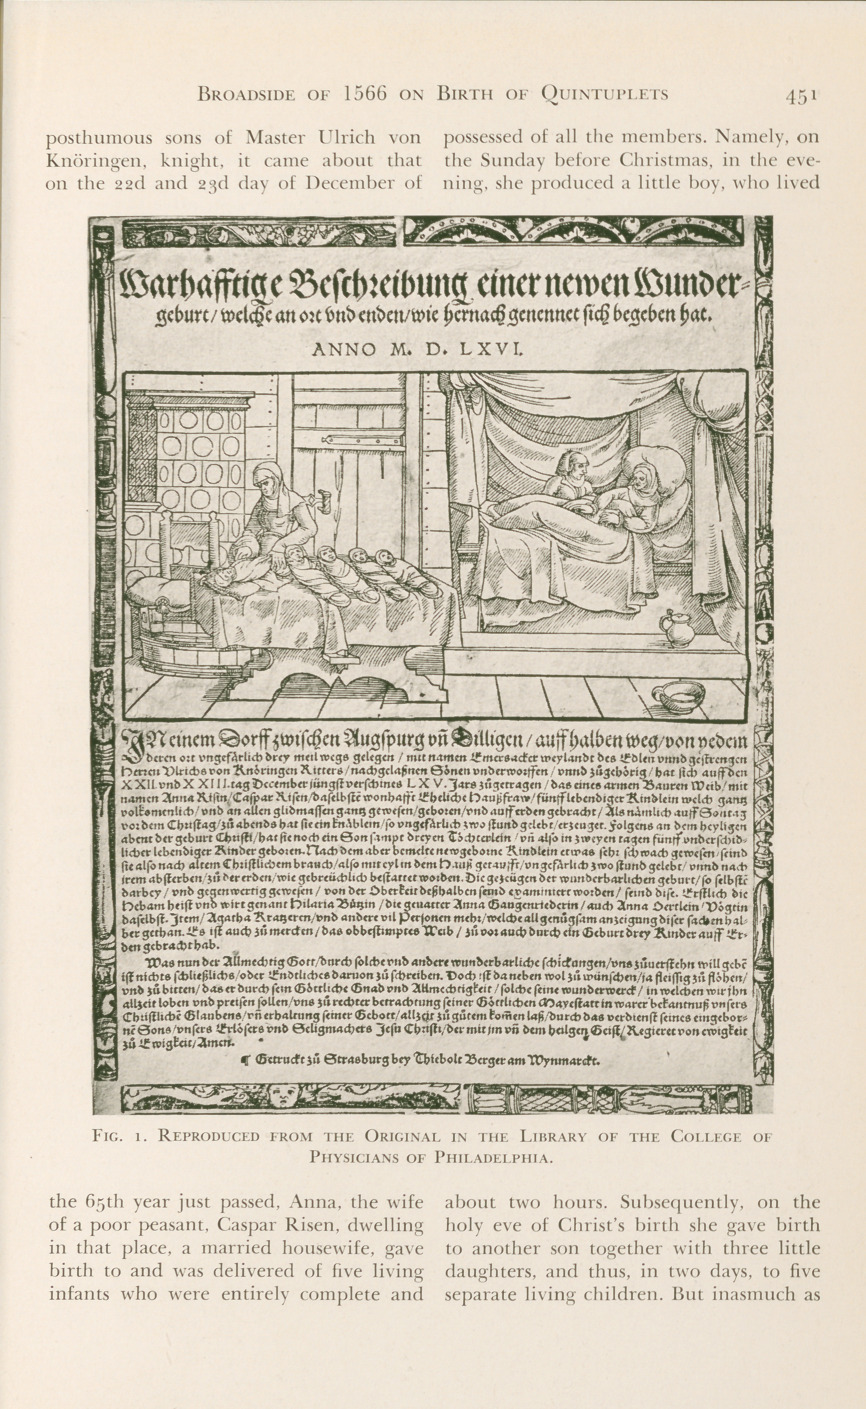 BROADSIDE OF 1566 ON BIRTH OF QUINTUPLETS 451
posthumous sons of Master Ulrich von
Knöringen, knight, it came about that
on the 22d and 23d day of December of
possessed of all the members. Namely, on
the Sunday before Christmas, in the eve-
ning, she produced a little boy, who lived
Warhafftige Beschreibung einer newen Wunder-
geburt / welche an ort vnd enden / wie hernach genennet sich begeben hat.
ANNO M. D. LXVI.
IN einem Dorff zwischen Augspurg vñ Dilligen / auff halben weg / von yedem
deren ort vngefärlich drey meil wegs gelegen / mit namen Emersacker weylandt des Edlen vnnd gestrengen
Herren Vlrichs von Knöringen Ritters / nachgelaßnen Sönen vnderworffen / vnnd zůgehörig / hat sich auff den
XXII vnd XXIII. tag December jüngst verschines LXV. Jars zůgetragen / das eines armen Bauren Weib / mit
namen Anna Risin / Caspar Risen / daselbstē wonhafft Eheliche Haußfraw / fünff lebendiger Kindlein welch gantz
volkomenlich / vnd an allen glidmassen gantz gewesen / geboren / vnd auff erden gebracht / Als nämlich auff Sontag
vor dem Christag / zů abends hat sie ein knäblein / so vngefärlich zwo stund gelebt / erzeuget. Folgens an dem heyligen
abent der geburt Christi / hat sie noch ein Son sampt dreyen Töchterlein / vñ also in zweyen tagen fünff vnderschid-
licher lebendiger Kinder geboren. Nach dem aber bemelte newgeborne Kindlein etwas sehr schwach gewesen / seind
sie also nach altem Christlichem brauch / also mit eyl in dem Hauß getaufft / vngefärlich zwo stund gelebt / vnnd nach
irem absterben / zů der erden / wie gebreüchlich bestattet worden. Die gezeügen der wunderbarlichen geburt / so selbstē
darbey / vnd gegenwertig gewesen / von der Oberkeit deßhalben seind examiniert worden / seind dise. Erstlich die
Hebam heist vnd wirt genant Hilaria Bützin / die geuatter Anna Gangenriederin / auch Anna Oertlein Vögtin
daselbst. Item / Agatha Kratzeren / vnd andere vil Personen mehr / welche all genůgsam anzeigung diser sachen hal-
ber gethan. Es ist auch zů mercken / das obbestimptes Weib / zů vor auch durch ein Geburt drey Kinder auff Er-
den gebracht hab.
Was nun der Allmechtig Gott / durch solche vnd andere wunderbarliche schickungen / vns zůuerstehn will gebē
ist nichts schließlichs / oder Endtliches daruon zů schreiben. Doch ist daneben wol zů wünschen / ja fleissig zů flöhen /
vnd zů bitten / das er durch sein Göttliche Gnad vnd Allmechtigkeit / solche seine wunderwerck / in welchen wir jhn
allzeit loben vnd preisen sollen / vns zů rechter betrachtung seiner Göttlichen Mayestatt in warer bekantnuß vnsers
Christlichē Glaubens / vñ erhaltung seiner Gebott / allzeit zů gůtem kom̃en laß / durch das verdienst seines eingebor-
nē Sons / vnsers Erlösers vnd Seligmachers Jesu Christi / der mit jm vñ dem heilgen Geist / Regieret von ewigkeit
zů Ewigkeit / Amen.
¶ Getruckt zů Strasburg bey Thiebolt Berger am Wynmarckt.
FIG. 1. REPRODUCED FROM THE ORIGINAL IN THE LIBRARY OF THE COLLEGE OF
PHYSICIANS OF PHILADELPHIA.
the 65th year just passed, Anna, the wife
of a poor peasant, Caspar Risen, dwelling
in that place, a married housewife, gave
birth to and was delivered of five living
infants who were entirely complete and
about two hours. Subsequently, on the
holy eve of Christ's birth she gave birth
to another son together with three little
daughters, and thus, in two days, to five
separate living children. But inasmuch as